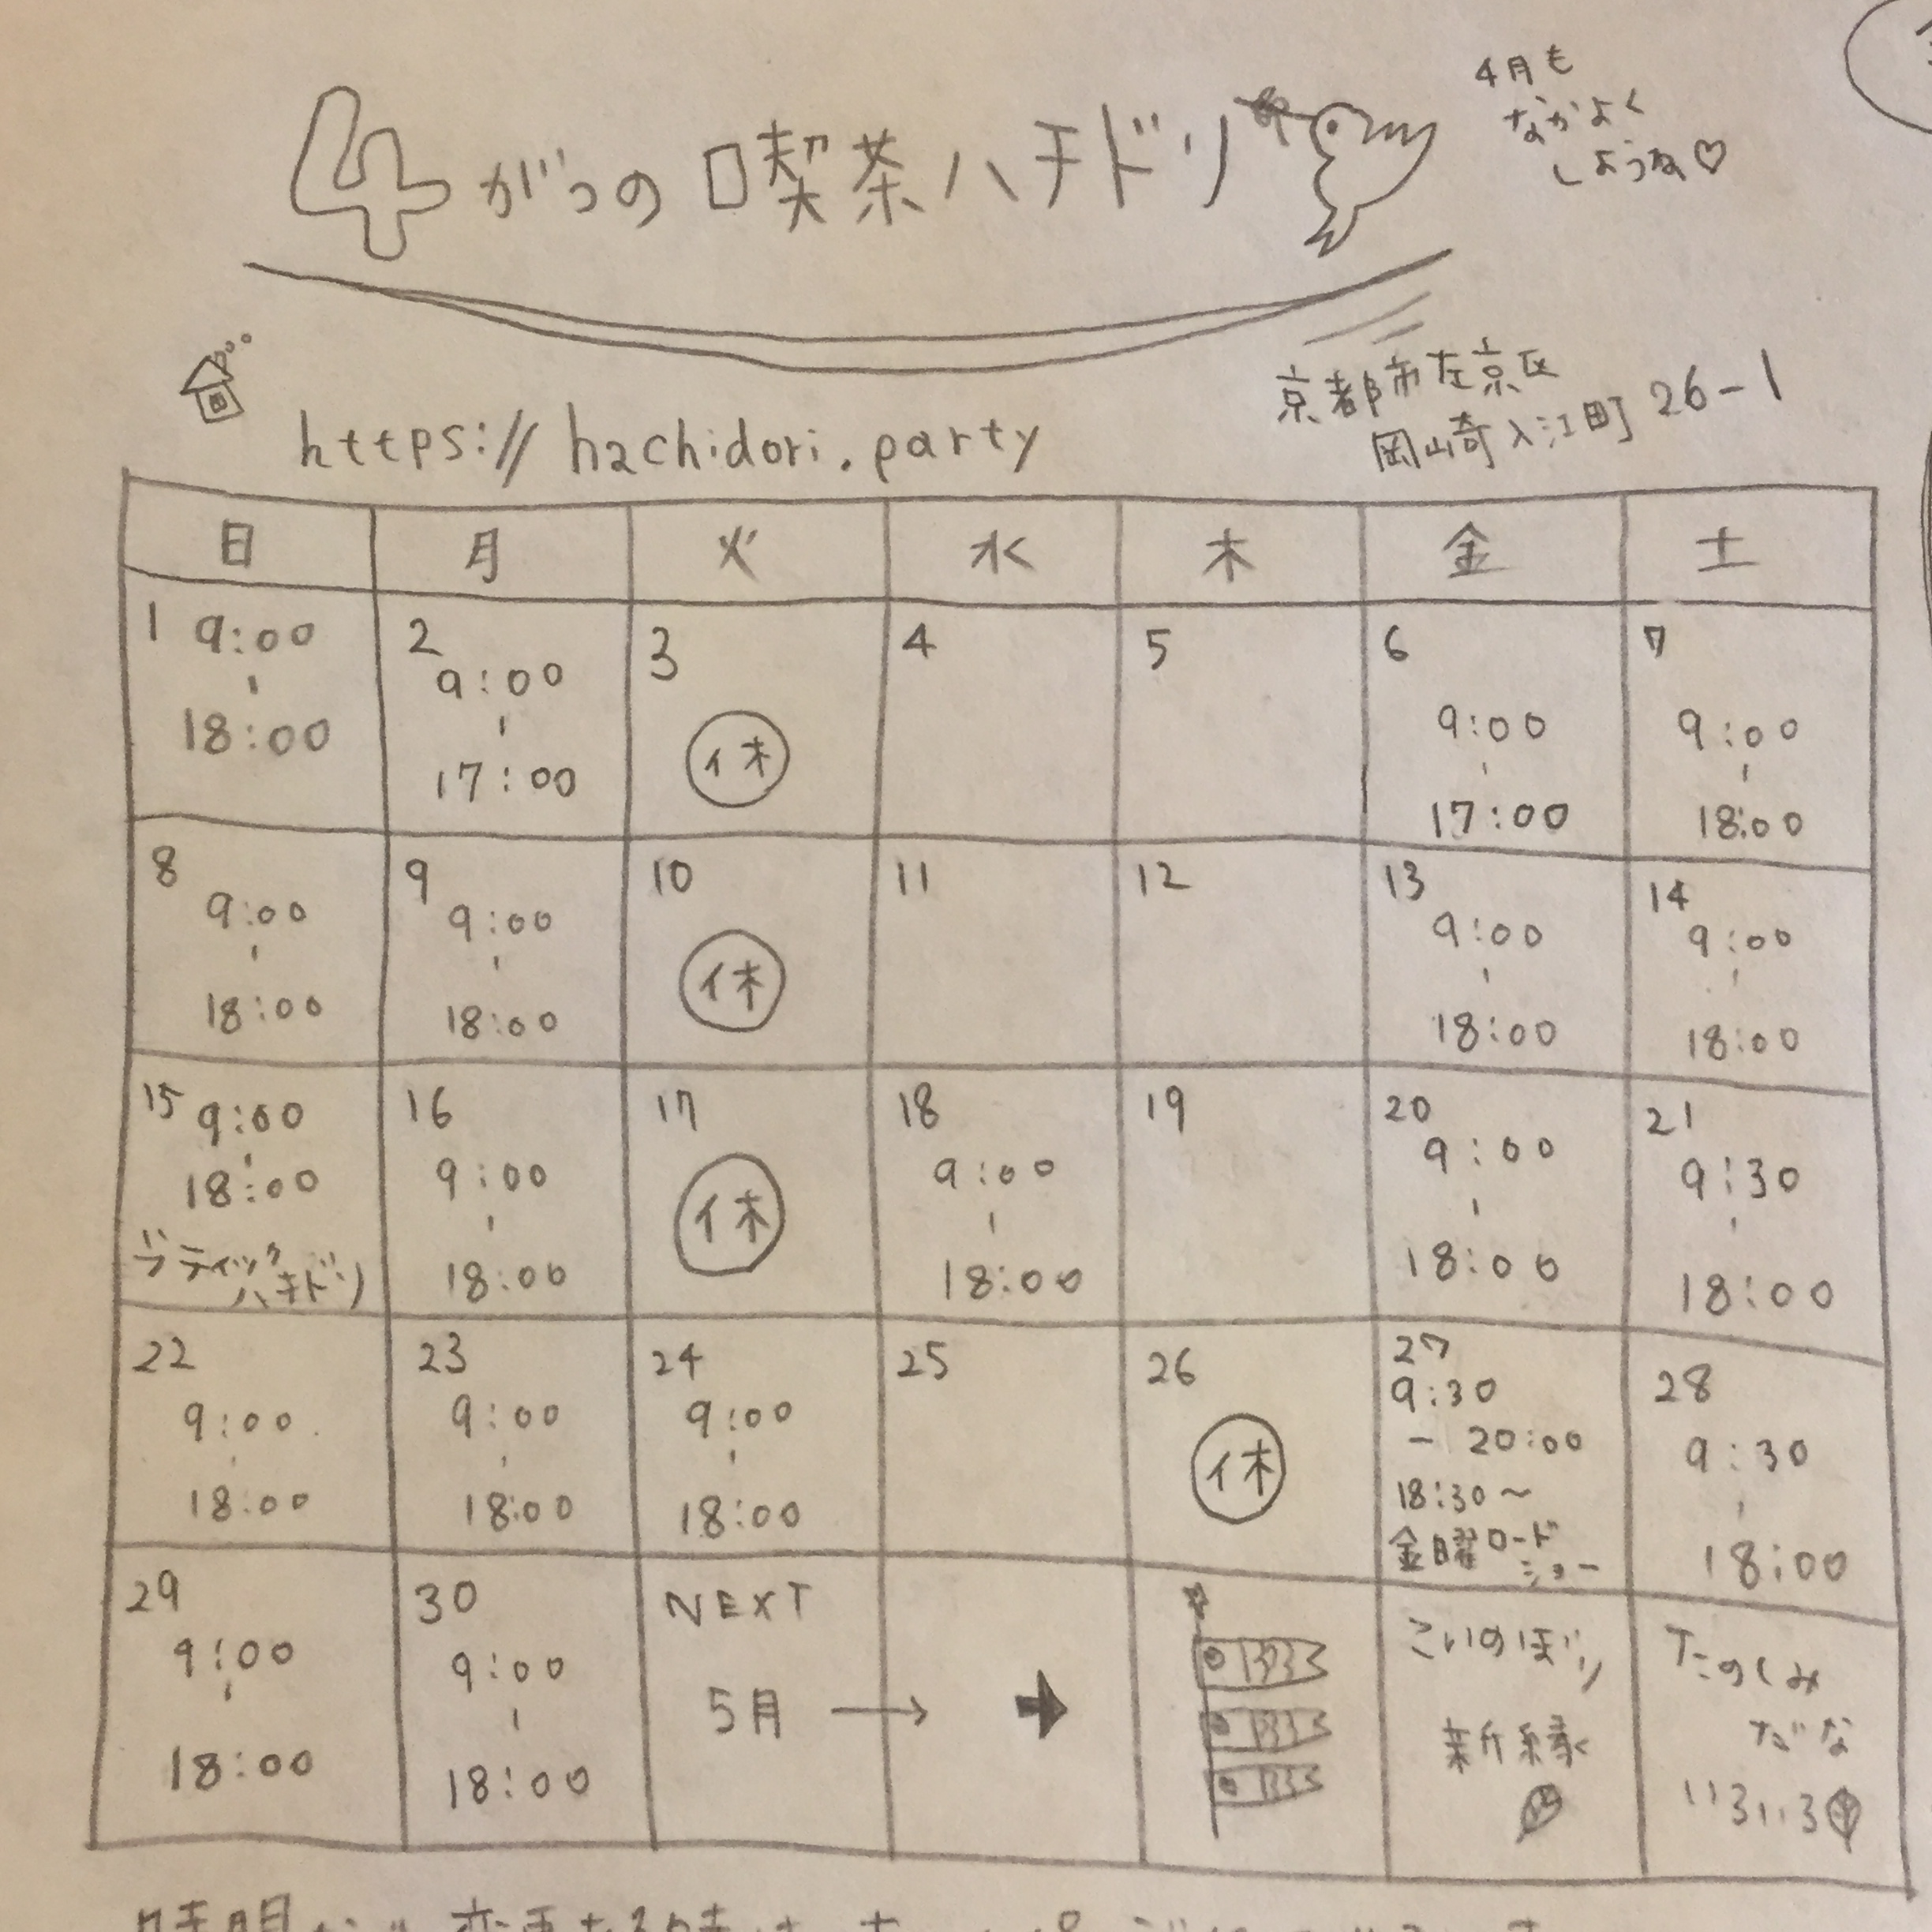 4がつの喫茶ハチドリ
4月も
なかよく
しようね♡
https://hachidori.party
京都市左京区
岡崎入江町 26-1
日 月 火 水 木 金 土
1 9:00 - 18:00
2 9:00 - 17:00
3 休
4
5
6 9:00 - 17:00
7 9:00 - 18:00
8 9:00 - 18:00
9 9:00 - 18:00
10 休
11
12
13 9:00 - 18:00
14 9:00 - 18:00
15 9:00 - 18:00
ブティック
ハチドリ
16 9:00 - 18:00
17 休
18 9:00 - 18:00
19
20 9:00 - 18:00
21 9:30 - 18:00
22 9:00 - 18:00
23 9:00 - 18:00
24 9:00 - 18:00
25
26 休
27
9:30
- 20:00
18:30〜
金曜ロード
ショー
28 9:30 - 18:00
29 9:00 - 18:00
30 9:00 - 18:00
NEXT
5月 → ➡
こいのぼり
新緑
たのしみ
だな
いろいろ